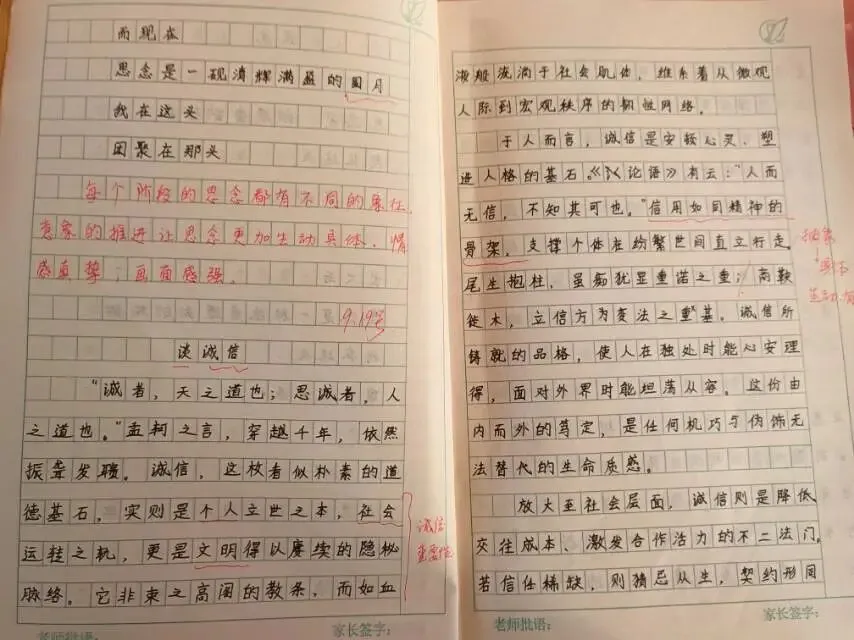 而现在
思念是一砚清辉满盈的圆月
我在这头
团聚在那头
每个阶段的思念都有不同的象征,
意象的推进让思念更加生动具体,情
感真挚;画面感强。
9.19号
谈诚信
“诚者,天之道也;思诚者,人
之道也。”孟轲之言,穿越千年,依然
振聋发聩。诚信,这枚看似朴素的道
德基石,实则是个人立世之本,社会
运转之轨,更是文明得以赓续的隐秘
脉络。它非束之高阁的教条,而如血
诚信
重要性
老师批语:
家长签字:
液般流淌于社会肌体,维系着从微观
人际到宏观秩序的韧性网络。
于人而言,诚信是安顿心灵、塑
造人格的基石。《论语》有云:“人而
无信,不知其可也。”信用如同精神的
骨架,支撑个体在纷繁世间直立行走。
尾生抱柱,虽痴犹显重诺之重;商鞅
徙木,立信方为变法之基。诚信所
铸就的品格,使人在独处时能心安理
得,面对外界时能坦荡从容。这份由
内而外的笃定,是任何机巧与伪饰无
法替代的生命质感。
放大至社会层面,诚信则是降低
交往成本、激发合作活力的不二法门。
若信任稀缺,则猜忌丛生,契约形同
老师批语:
家长签字: